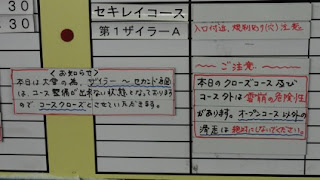 30
30
セキレイコース
第1ザイラーA
<お知らせ>
本日は大雪の為、ザイラー 〜 セカンド通過
は、コース整備が出来ない状態となっております
ので コースクローズとさせていただきます。
入口付近、規制あり(穴)注意。
〜 ご注意. 〜
本日のクローズコース及び
コース外は雪崩の危険性
があります。オープンコース以外の
滑走は絶対にしないでください。